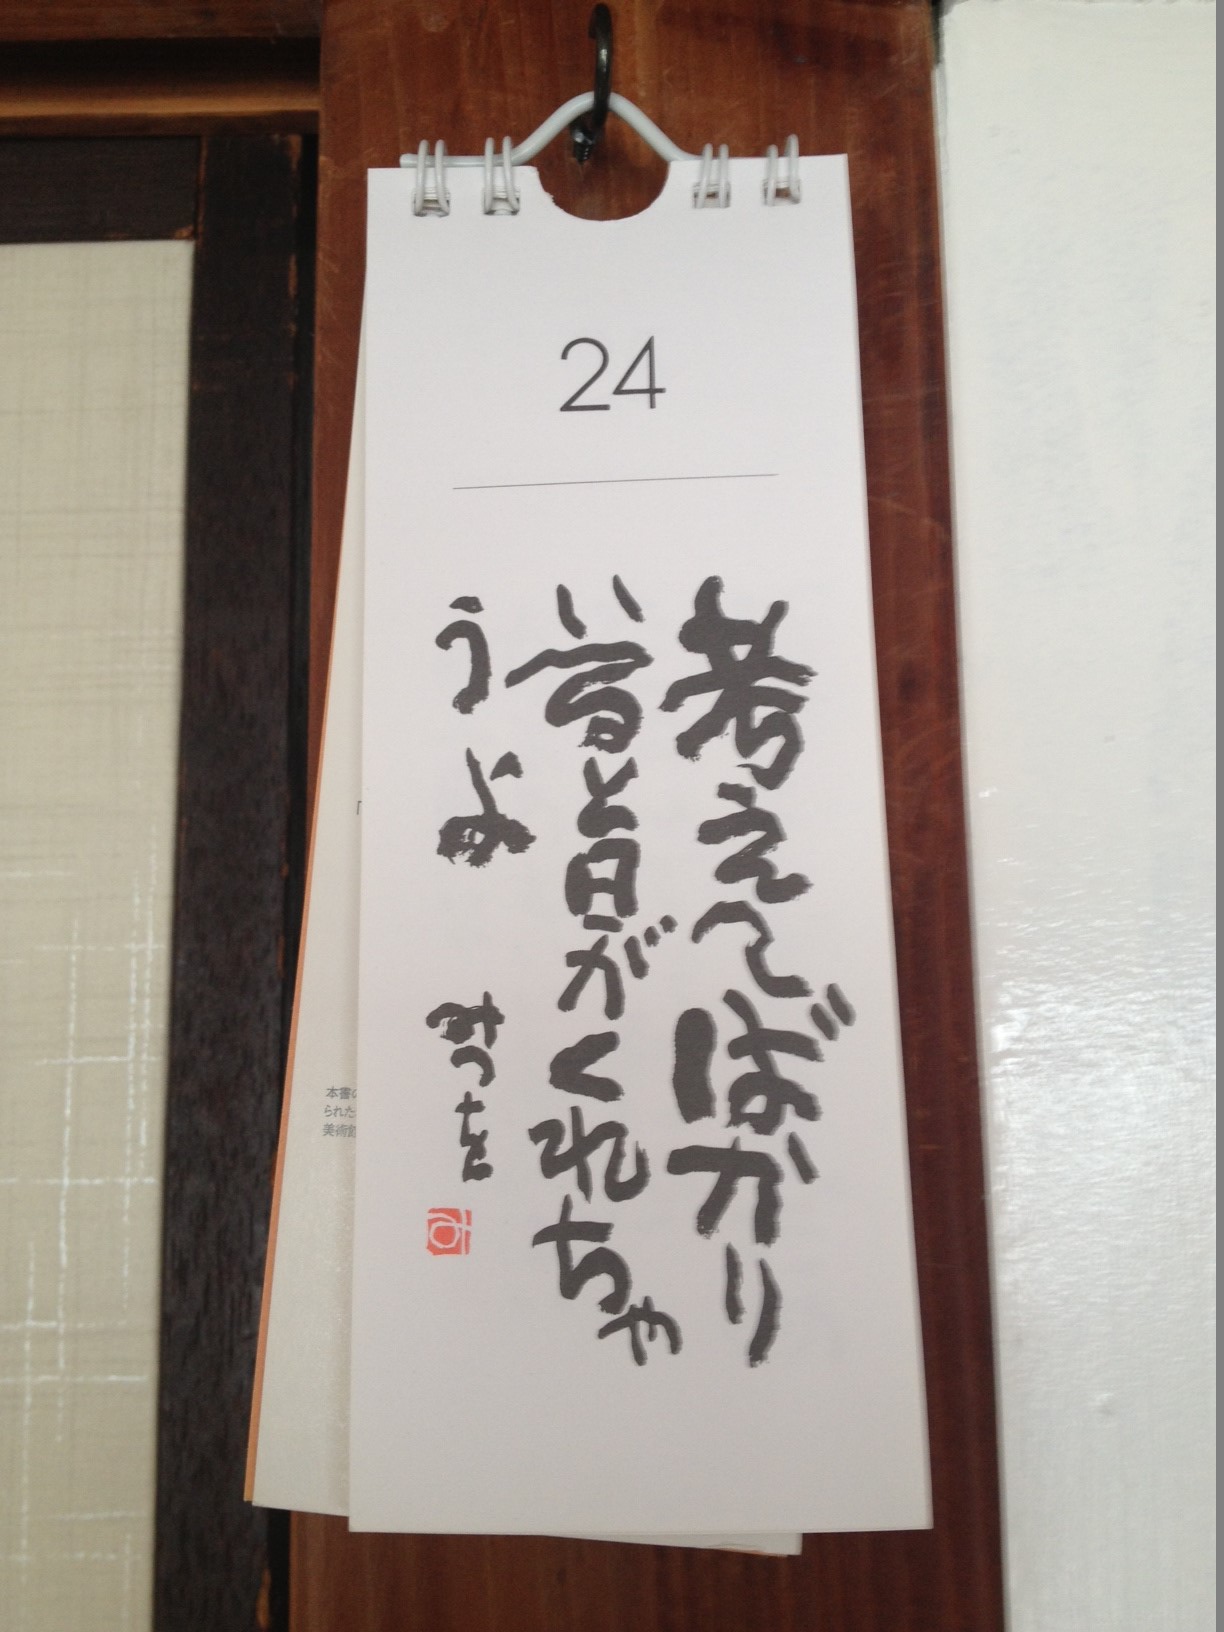 24
考えてばかり
いると日がくれちゃ
うよ
みつを
み
「
本書の
られた
美術館